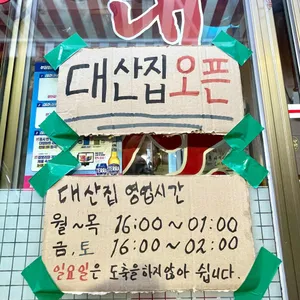 대산집 오픈
대산집 영업시간
월~목 16:00~01:00
금,토 16:00~02:00
일요일은 도축을하지않아 쉽니다.